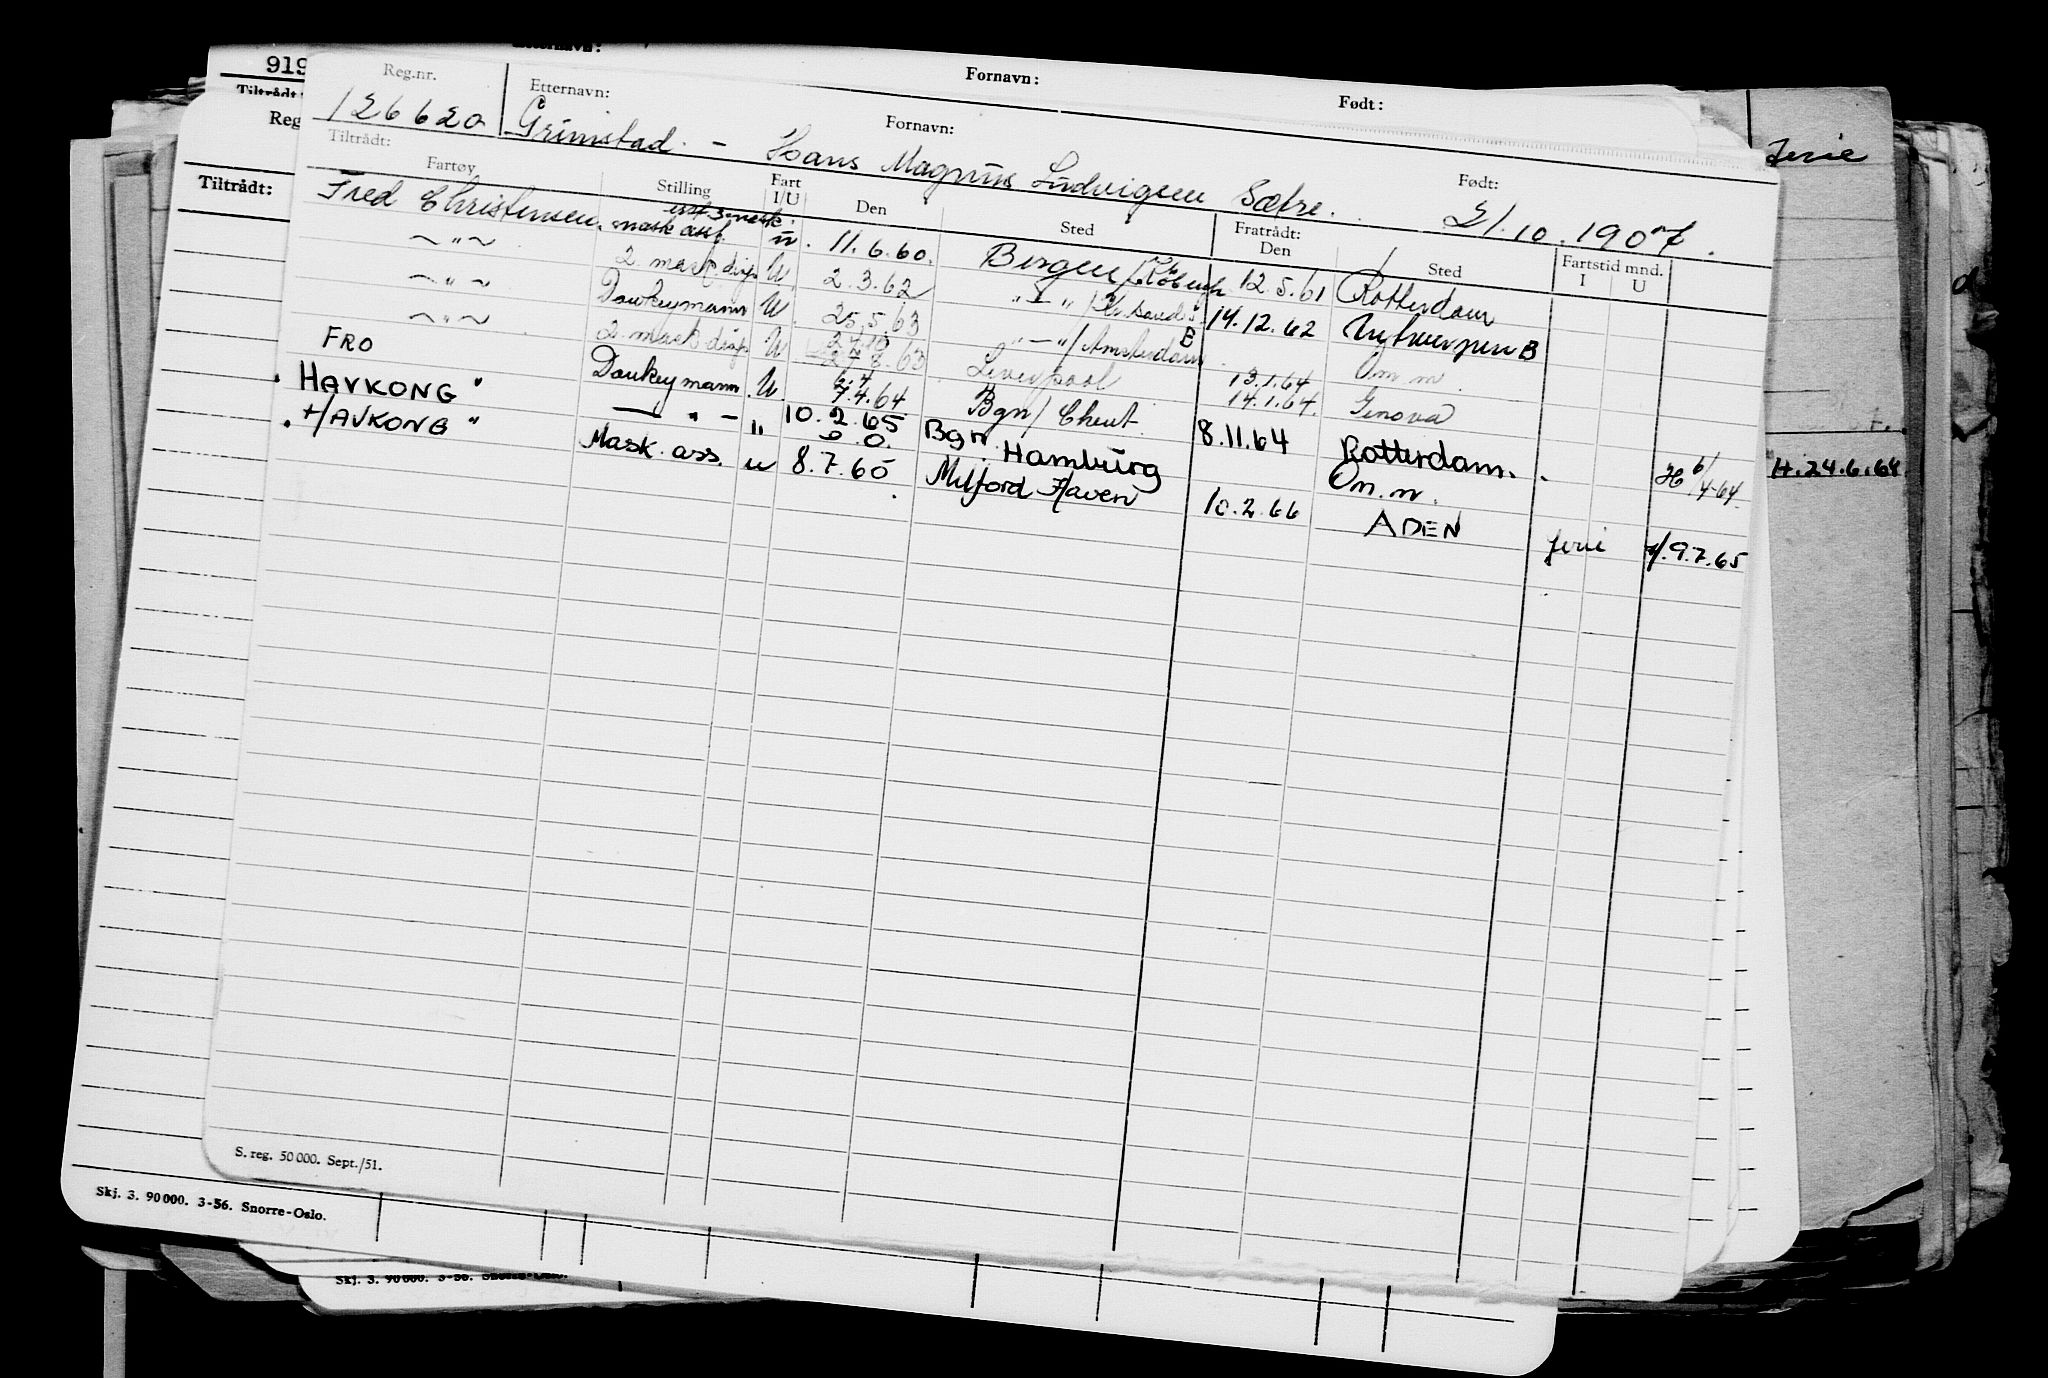 Etternavn: Fornavn: Født:
919
Tiltrådt:
Reg
Tiltrådt:
Reg.nr. Etternavn: Fornavn: Født:
126620 Grimstad. - Hans Magnus Ludvigsen Sætre. 21.10.1907.
Tiltrådt: Fratrådt:
Fartøy Stilling Fart I/U Den Sted Den Sted Fartstid mnd. I U
Fred Christensen. mask ass. u. 11.6.60. Bergen 12.5.61 Rotterdam
~ " ~ 2. mask. disp U 2.3.62 " - " 14.12.62 Antwerpen B
~ " ~ Donkeymann U 25.5.63 " - " / Amsterdam B Om m.
~ " ~ 2. mask disp U 8.63 Liverpool 13.1.64 14.1.64. Genova
FRO Donkeymann U 7.4.64 Bgn / 8.11.64 Rotterdam. H 6/4-64
"HAVKONG" — " — " 10.2.65 Bgn. Hamburg Om. m.
"HAVKONG" Mask. ass. u 8.7.65 Milford Haven 10.2.66 ADEN ferie 9.7.65
ferie
H.24.6.64
S. reg. 50 000. Sept./51.
Skj. 3. 90 000. 3-56. Snorre-Oslo.
Skj. 3. 90 000. 3-56. Snorre-Oslo.